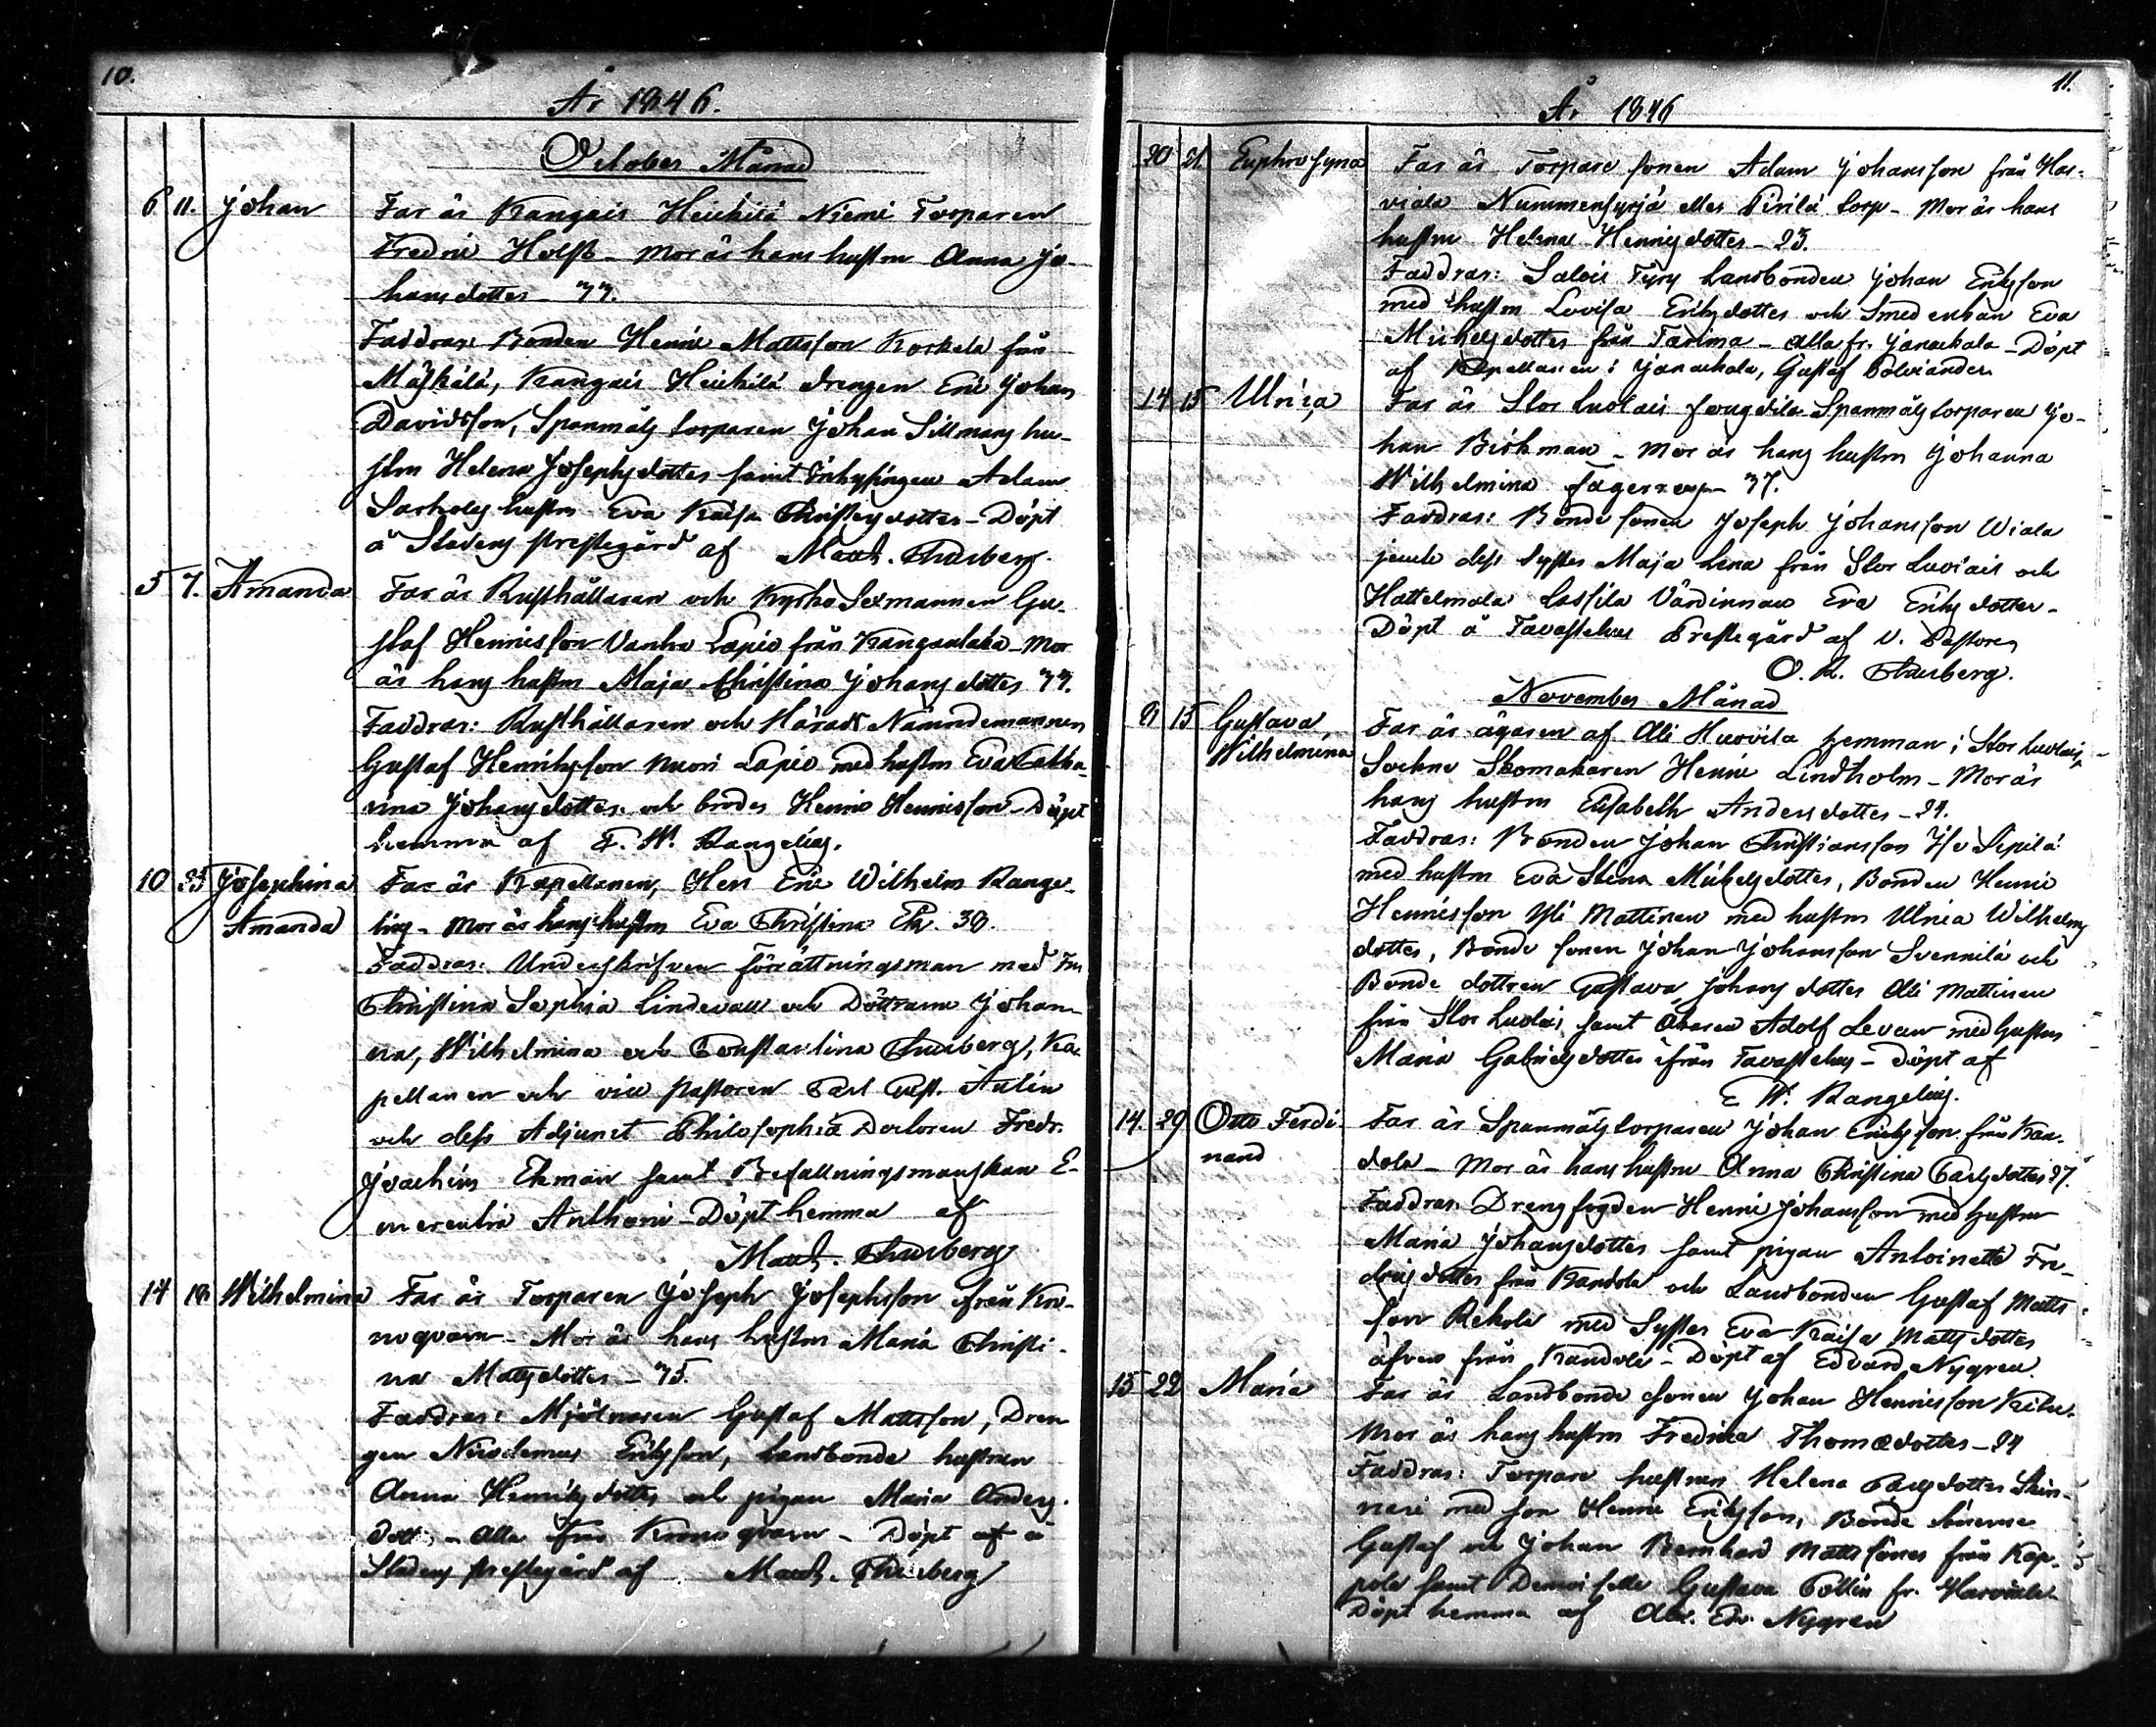 10.
År 1846.
October Månad
6. 11. Johan Far är Kangais Heickilä Niemi Torparen
Fredric Holst - Mor är hans hustru Anna Jo-
hansdotter - 33.
Faddrar: Bonden Henric Mattsson Korkela från
Mäskälä, Kangais Heickilä drengen Eric Johan
Davidsson, Spanmåls torparen Johan Sillmans hu-
stru Helena Josephsdotter samt Inhysingen Adam
hustru Eva Kaisa Christersdotter - Döpt
å Stadens prestegård af Matth. Chusberg.
5 7. Amanda Far är Rusthållaren och Kyrko Sexmannen Gu-
staf Henricsson Vanha Lapio från Kangantaka - Mor
är hans hustru Maja Christina Johansdotter 33.
Faddrar: Rusthållaren och Härads Nämndemannen
Gustaf Henriksson Nuori Lapio med hustru Eva Catha-
rina Johansdotter och broder Henric Henricsson - Döpt
hemma af E. W. Rangelius.
10 25 Josephina Amanda Far är Kapellanen, Herr Eric Wilhelm Range-
lius - Mor är hans hustru Eva Christina Ek. 30.
Faddrar: Underskrifven förrättningsman med Fru
Christina Sophia Lindevall och Döttrarne Johan-
na, Wilhelmina och Constantina Chusberg, Ka-
pellanen och vice pastoren Carl Gust. Aulin
och dess Adjunct Philosophiæ Doctoren Fredr.
Joachim Ekman samt Befallningsmanskan E-
merentia Anthoni - Döpt hemma af
Matth. Chusberg
14 18 Wilhelmina Far är Torparen Joseph Josephsson ifrån Kro-
noqvarn - Mor är hans hustru Maria Christi-
na Mattsdotter - 35.
Faddrar: Mjölnaren Gustaf Mattsson, Dren-
gen Nicodemus Ericsson, Landbonde hustrun
Anna Henriksdotter och pigan Maria Anders-
dott: - Alla från Kronoqvarn - Döpt af å
Stadens prestegård af Matth. Chusberg
11.
År 1846
20 21 Euphrosyna Far är Torpare sonen Adam Johansson från Har-
viala Nummensyrjä eller Pirilä torp - Mor är hans
hustru Helena Henricsdotter - 23.
Faddrar: Salois Tyry Landbonden Johan Ericsson
med hustru Lovisa Ericsdotter och Smed enkan Eva
Michelsdotter från - Alla fr. Janackala - Döpt
af Kapellanen i Janackala, Gustaf Polviander.
14 15 Ulrica Far är Stor Luolais Spanmåls torparen Jo-
han Björkman - Mor är hans hustru Johanna
Wilhelmina 37.
Faddrar: Bonde sonen Joseph Johansson Wiala
jemte dess Syster Maja Lena från Stor Luolais och
Hattelmala Lassila Värdinnan Eva Ericsdotter -
Döpt å Tavastehus Prestegård af V. Pastoren
O. R. Chusberg.
November Månad
9 15 Gustava Wilhelmina Far är ägaren af Alli Huovila hemman i Stor Luolais
Sockne Skomakaren Henric Lindholm - Mor är
hans hustru Elisabeth Andersdotter - 24.
Faddrar: Bonden Johan Christiansson Iso Sipilä
med hustru Eva Stina Michelsdotter, Bonden Henric
Henricsson Yli Mattinen med hustru Ulrica Wilhelms
dotter, Bonde sonen Johan Johansson Svennilä och
Bonde dottren Gustava Johansdotter Alli Mattinen
från Stor Luolais samt Adolf Levan med hustru
Maria Gabrielsdotter ifrån Tavastehus - Döpt af
E W. Rangelius.
14. 29 Otto Ferdi-
nand Far är Spanmåls torparen Johan Ericsson från Kan-
dola - Mor är hans hustru Anna Christina Carlsdotter 27.
Faddrar: Drengfogden Henric Johansson med hustru
Maria Johansdotter samt pigan Antoinette Fre-
dricsdotter från Kandola och Landbonden Gustaf Matts-
son Rekola med Syster Eva Kaisa Mattsdotter
äfven från Kandola - Döpt af Edvard Nygren.
15 22 Maria Far är Landbonde sonen Johan Henricsson
Mor är hans hustru Fredrica Thomædotter - 24
Faddrar: Torpare hustrun Helena Carlsdotter Skin-
nari med son Henric Ericsson, Bonde sönerne
Gustaf och Johan Bernhard Mattssöner från Kap-
pola samt Demoiselle Gustava Collin fr. Harviala
Döpt hemma af Edv. Nygren